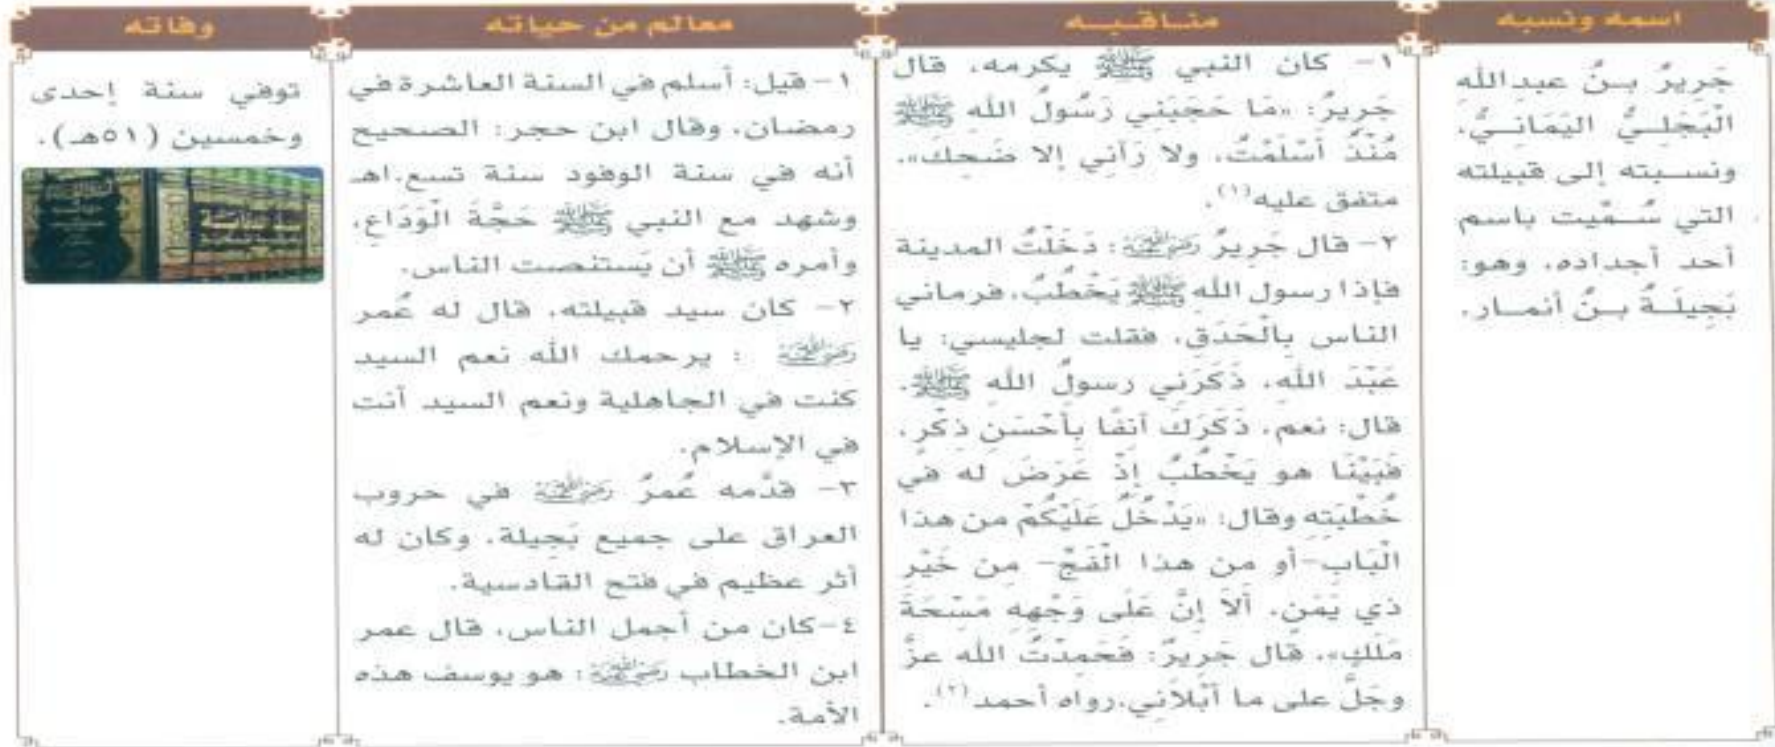 اسمه ونسبه
جَريرُ بنُ عبدالله
الْبَجَلِيُّ اليَمَانِيُّ،
ونسبته إلى قبيلته
التي سُمِّيت باسم
أحد أجداده، وهو:
بَجِيلَةُ بنُ أنمار.
مناقبه
١- كان النبي ﷺ يكرمه، قال
جَريرُ: «مَا حَجَبَني رَسُولُ الله ﷺ
مُنْذُ أَسْلَمْتُ، ولا رَآني إلا ضَحِك».
متفق عليه(١).
٢- قال جَريرُ رضي الله عنه: دَخَلْتُ المدينة
فإذا رسول الله ﷺ يَخْطُبُ، فرماني
الناس بِالْحَدَقِ، فقلت لجليسي: يا
عَبْدَ الله، ذَكَرَني رسولُ الله ﷺ،
قال: نعم، ذَكَرَكَ آنفًا بِأَحْسَنِ ذِكْرٍ،
فَبَيْنَا هو يَخْطُبُ إِذْ عَرَضَ له في
خُطْبَتِهِ وقال: «يَدْخُلُ عَلَيْكُمْ من هذا
الْبَابِ-أو من هذا الْفَجِّ- مِن خَيْرِ
ذي يَمَنٍ، أَلاَ إِنَّ عَلَى وَجْهِهِ مَسْحَةَ
مَلَكٍ»، قال جَريرُ: فَحَمِدْتُ الله عزَّ
وجَلَّ على ما أَبْلاَني.رواه أحمد(٢).
معالم من حياته
١- قيل: أسلم في السنة العاشرة في
رمضان، وقال ابن حجر: الصحيح
أنه في سنة الوفود سنة تسع.اهـ
وشهد مع النبي ﷺ حَجَّةَ الْوَدَاعِ،
وأمره ﷺ أن يَستنصت الناس.
٢- كان سيد قبيلته، قال له عُمر
رضي الله عنه : يرحمك الله نعم السيد
كنت في الجاهلية ونعم السيد أنت
في الإسلام.
٣- قدَّمه عُمرُ رضي الله عنه في حروب
العراق على جميع بَجِيلة، وكان له
أثر عظيم في فتح القادسية.
٤-كان من أجمل الناس، قال عمر
ابن الخطاب رضي الله عنه: هو يوسف هذه
الأمة.
وفاته
توفي سنة إحدى
وخمسين (٥١هـ).